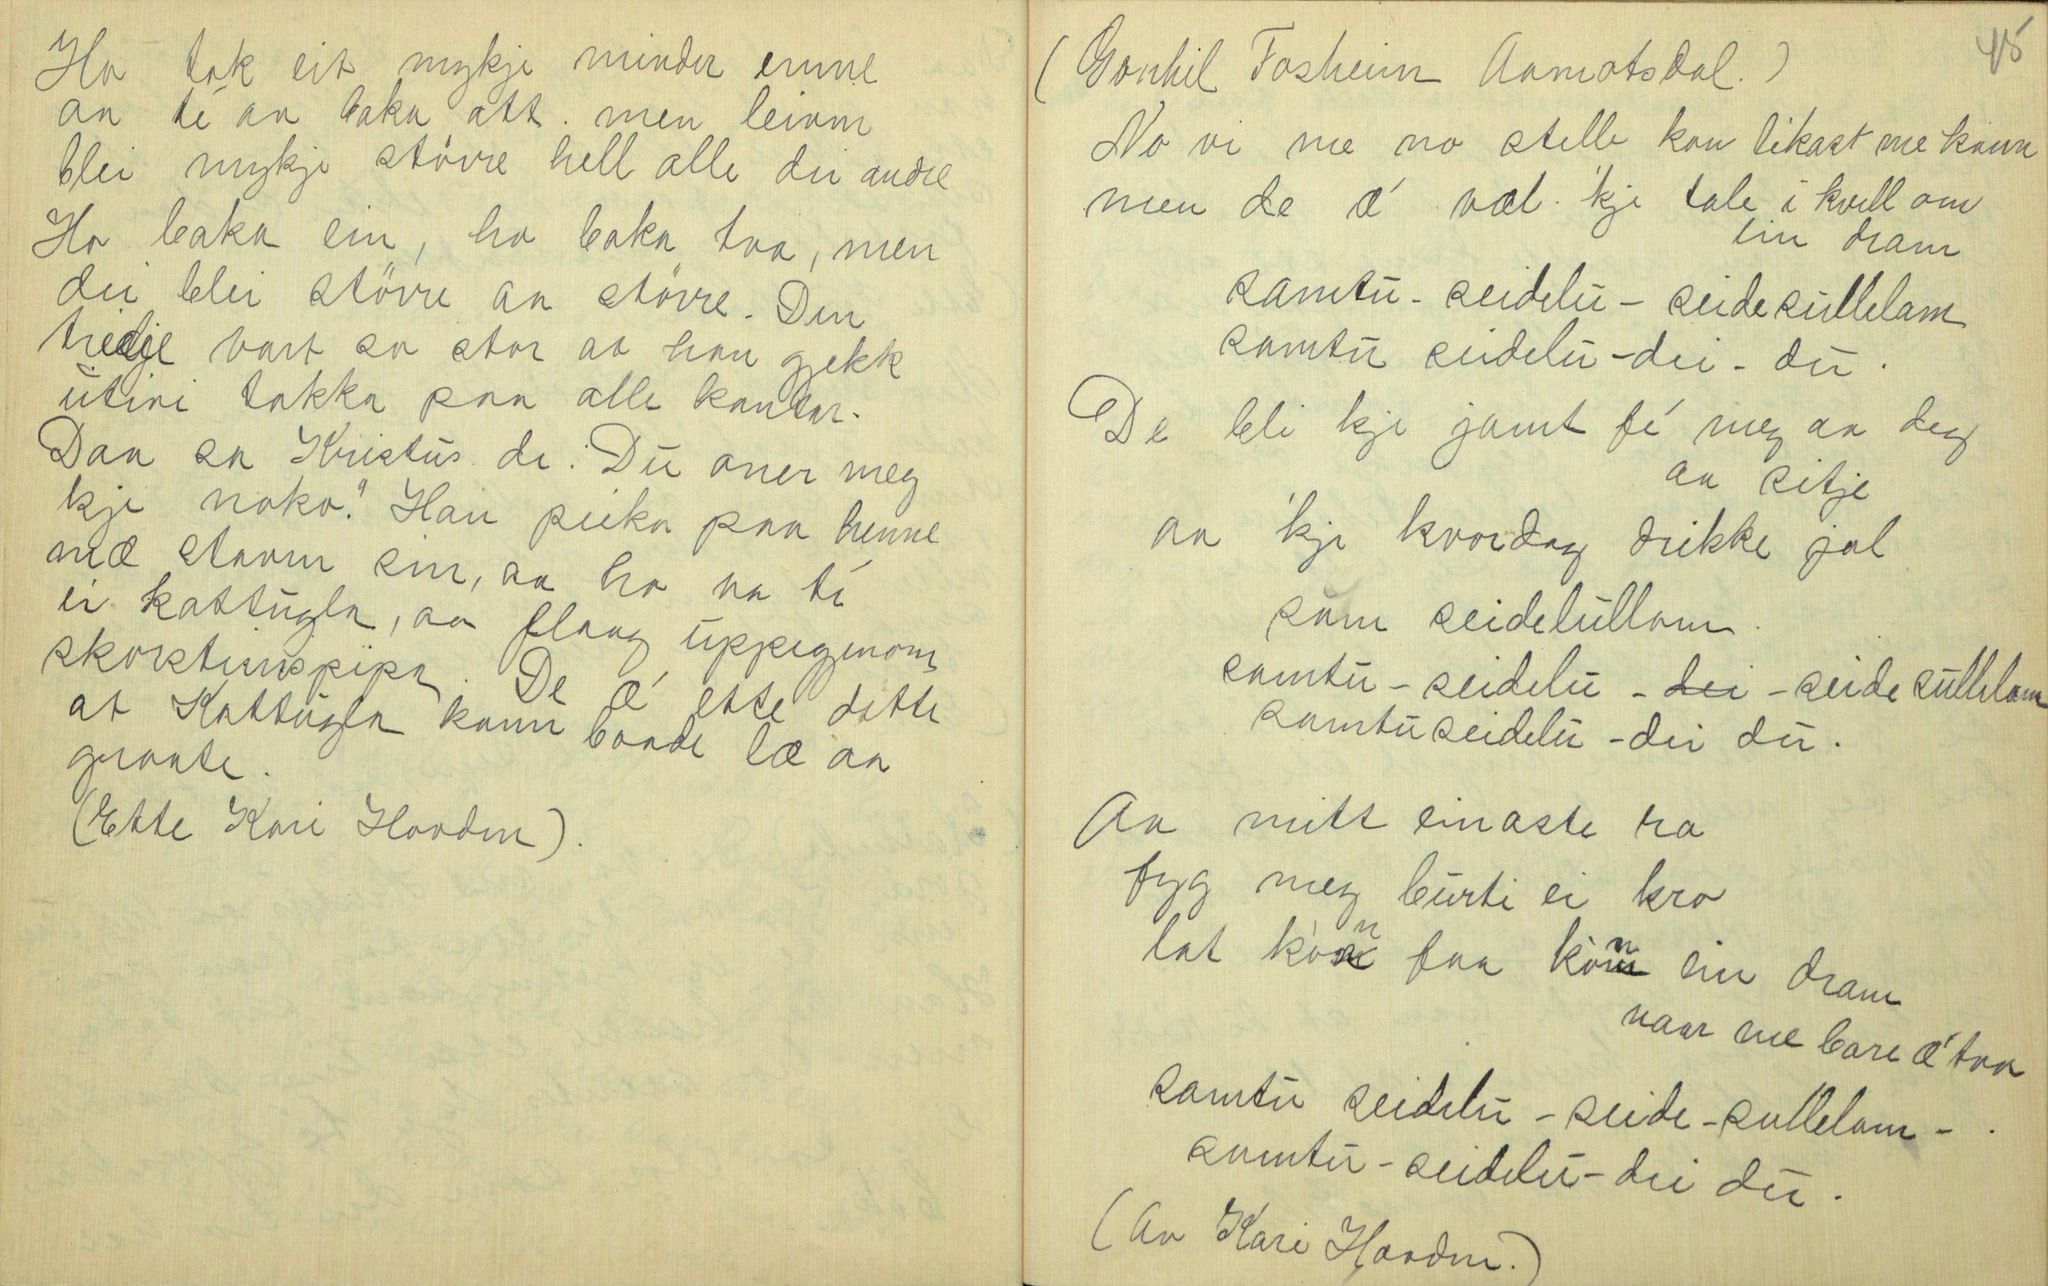 Ho tok eit mykje minder emne
aa te aa baka att. men leivm
blei mykje större hell alle dei andre
Ho baka ein, ho baka tvo, men
dei blei större aa större. Den
tredje vart so stor at han gjekk
ūtivi takka paa alle kantar.
Daa sa Kristūs de: Dū aner meg
kje noko." Han peika paa henne
mæ stavm sin, aa ho va te
ei kattūgla, aa flaug ūppegjenom
skorsteinspipa. De æ' ette dette
at Kattūgla kann baade læ aa
graate.
(Ette Kari Hovdm).
45
(Gonhil Fosheim Aamotsdal.)
No vi me no stelle kon likast me kann
men de æ' væl 'kje tale i kvell om
ein dram
samtū - seidelū - seide sūllelam
samtū seidelū - dei - dū.
De bli kje jamt fé meg aa deg
aa sitje
aa 'kje kvordag drikke jol
som seidelūllom.
samtū - seidelū - dei - seide sūllelam
samtū seidelū - dei dū.
Aa mitt einaste ro
fyg meg būrti ei kro
lat kòn faa kòn ein dram
naar me bare æ' tvo
samtū seidelū - seide - sullelam -.
samtū - seidelū - dei dū.
(Av Kari Hovdm.)